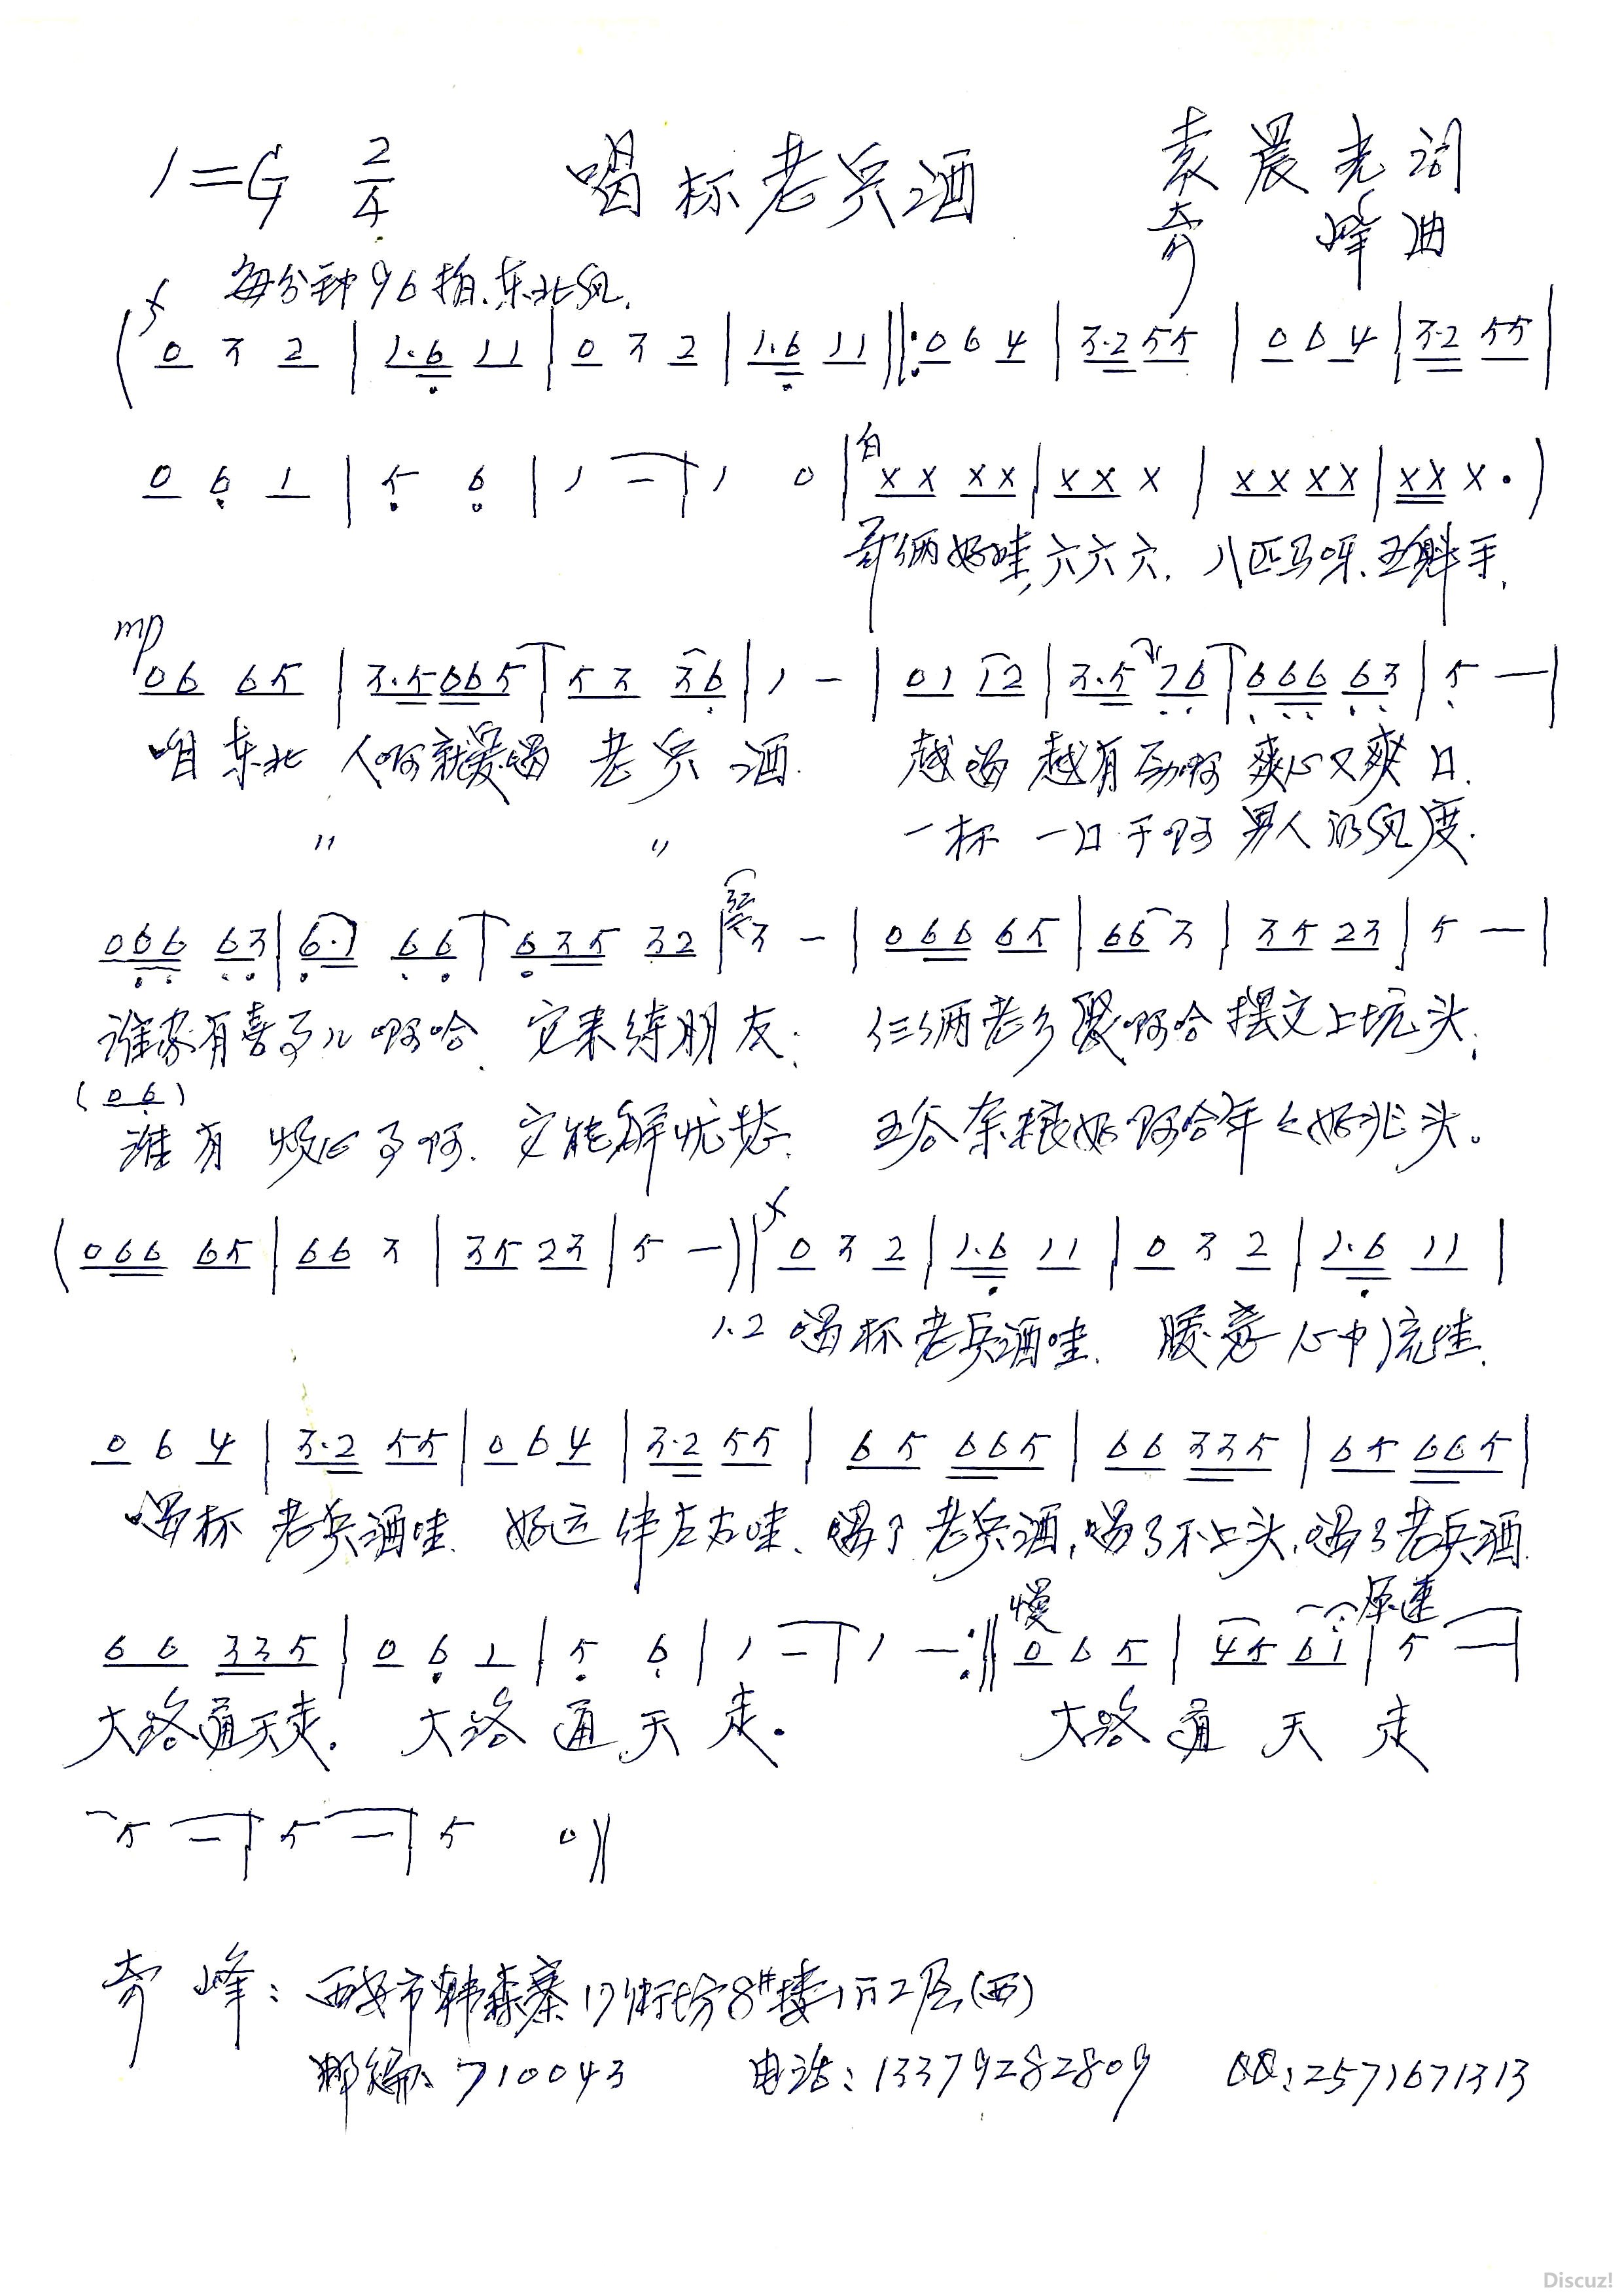 1=G 2/4 喝杯老兵酒 袁晨光词
奇峰曲
每分钟96拍.东北风.
f
(0 3 2 | 1.6 11 | 0 3 2 | 1.6 11 ‖: 0 6 4 | 3.2 55 | 0 6 4 | 3.2 55 |
0 6 1 | 5 6 | 1 — | 1 0 | 白 XX XX | XX X | XX XX | XX X· )
哥俩好哇,六六六. 八匹马呀.五魁手.
mp
06 65 | 3.5 065 | 53 36 | 1 — | 01 12 | 3.5 76 | 666 63 | 5 — |
咱东北 人啊就爱喝 老兵酒. 越喝 越有劲啊 爽心又爽口.
〃 〃 一杯 一口干啊 男人的风度.
066 63 | 6.1 66 | 635 32 | 32 3 — | 066 65 | 66 3 | 35 23 | 5 — |
谁家有喜事儿啊哈. 它来练朋友; 仨俩老乡聚啊哈摆文上坑头;
(06)
谁有 烦心事啊. 它能解忧愁. 五谷杂粮好啊哈年々好兆头。
(066 65 | 66 3 | 35 23 | 5 —)‖ f 0 3 2 | 1.6 11 | 0 3 2 | 1.6 11 |
1.2 喝杯老兵酒哇. 暖意心中流哇.
0 6 4 | 3.2 55 | 0 6 4 | 3.2 55 | 65 665 | 66 335 | 65 665 |
喝杯 老兵酒哇. 好运伴左右哇. 喝了老兵酒,喝了不上头,喝了老兵酒.
慢 原速
66 335 | 0 6 1 | 5 6 | 1 — | 1 — :‖ 0 6 5 | 45 61 | 5 — |
大路通天走. 大路通天走. 大路通天走
5 — | 5 — | 5 0 ‖
奇峰: 西安市韩森寨17街坊8#楼1门2层(西)
邮编: 710043 电话: 13379282809 QQ:2571671313
Discuz!